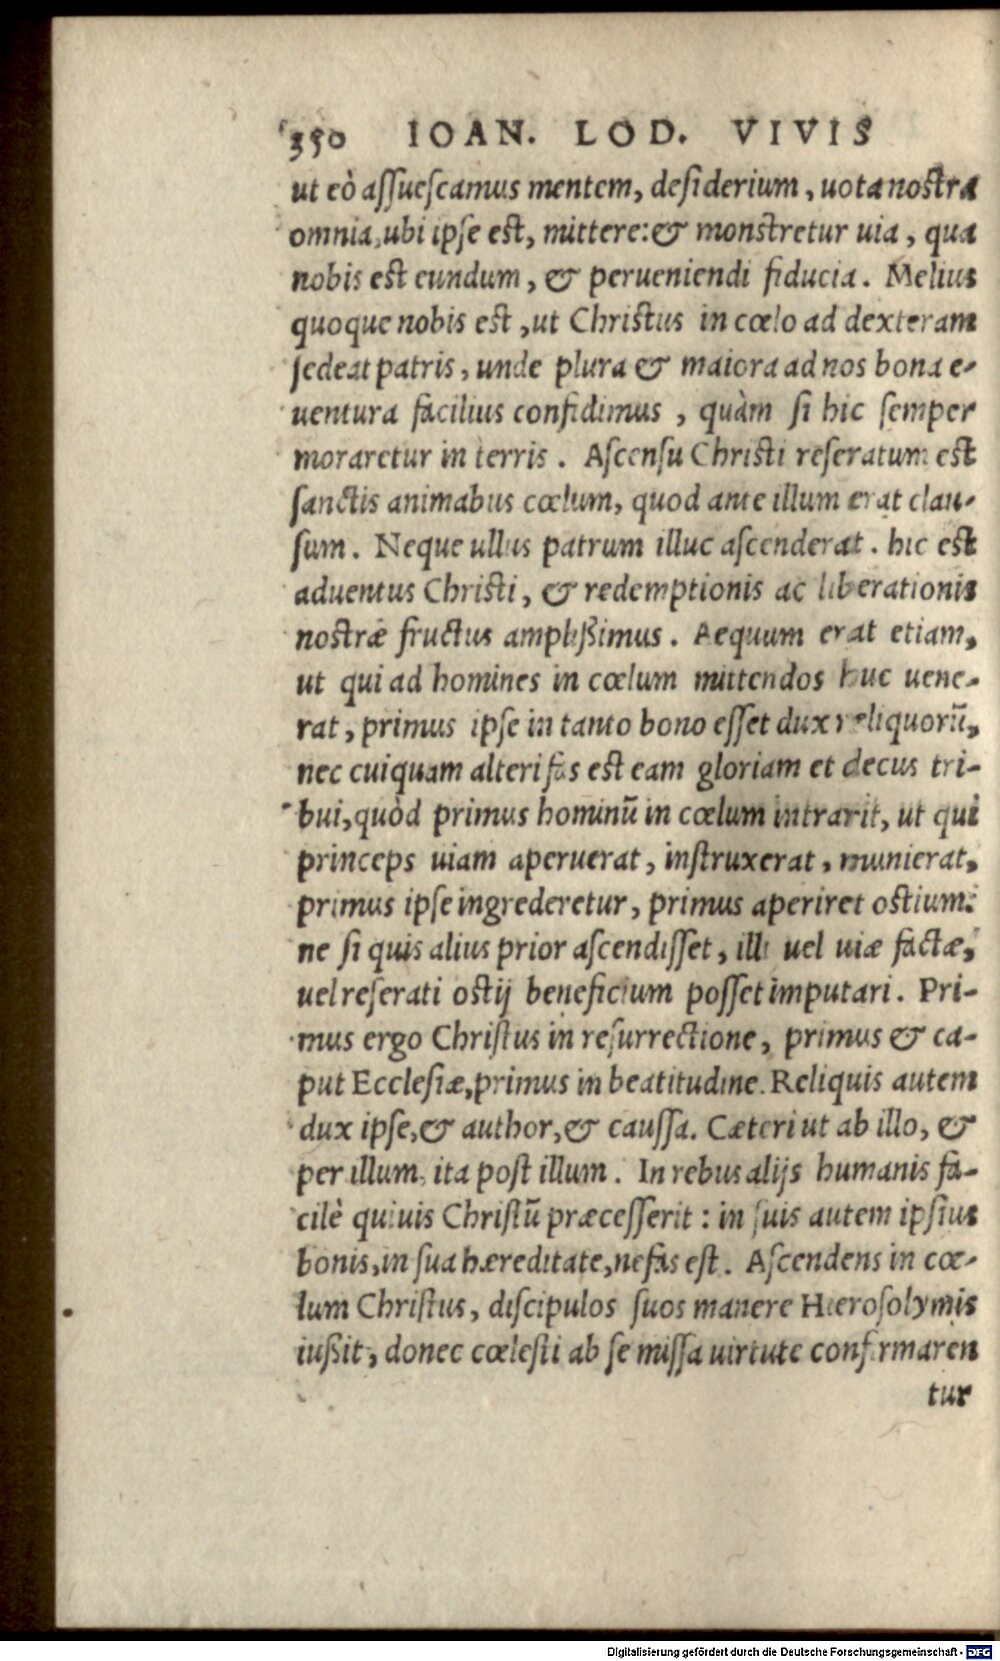 350 IOAN. LOD. VIVIS
ut eò assuescamus mentem, desiderium, uota nostra
omnia, ubi ipse est, mittere: & monstretur uia, qua
nobis est eundum, & perueniendi fiducia. Melius
quoque nobis est, ut Christus in cœlo ad dexteram
sedeat patris, unde plura & maiora ad nos bona e-
uentura facilius confidimus, quàm si hic semper
moraretur in terris. Ascensu Christi reseratum est
sanctis animabus cœlum, quod ante illum erat clau-
sum. Neque ullus patrum illuc ascenderat. hic est
aduentus Christi, & redemptionis ac liberationis
nostræ fructus amplißimus. Aequum erat etiam,
ut qui ad homines in cœlum mittendos huc uene-
rat, primus ipse in tanto bono esset dux reliquorũ,
nec cuiquam alteri fas est eam gloriam et decus tri-
bui, quòd primus hominũ in cœlum intrarit, ut qui
princeps uiam aperuerat, instruxerat, munierat,
primus ipse ingrederetur, primus aperiret ostium:
ne si quis alius prior ascendisset, illi uel uiæ factæ,
uel reserati ostij beneficium posset imputari. Pri-
mus ergo Christus in resurrectione, primus & ca-
put Ecclesiæ, primus in beatitudine. Reliquis autem
dux ipse, & author, & caussa. Cæteri ut ab illo, &
per illum, ita post illum. In rebus alijs humanis fa-
cilè quiuis Christũ præcesserit: in suis autem ipsius
bonis, in sua hæreditate, nefas est. Ascendens in cœ-
lum Christus, discipulos suos manere Hierosolymis
iußit, donec cœlesti ab se missa uirtute confirmaren
tur
Digitalisierung gefördert durch die Deutsche Forschungsgemeinschaft - DFG